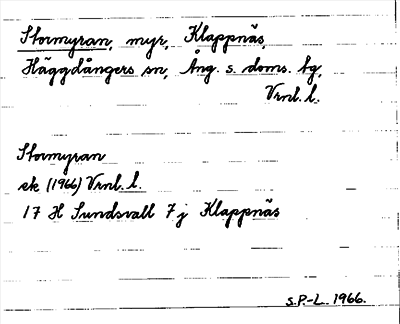 Stormyran, myr, Klappnäs,
Häggdångers sn, Ång. s. doms. bg,
Vrnl. l.
Stormyran
ek (1966) Vrnl. l.
17 H Sundsvall 7 j Klappnäs
S.P.-L. 1966.